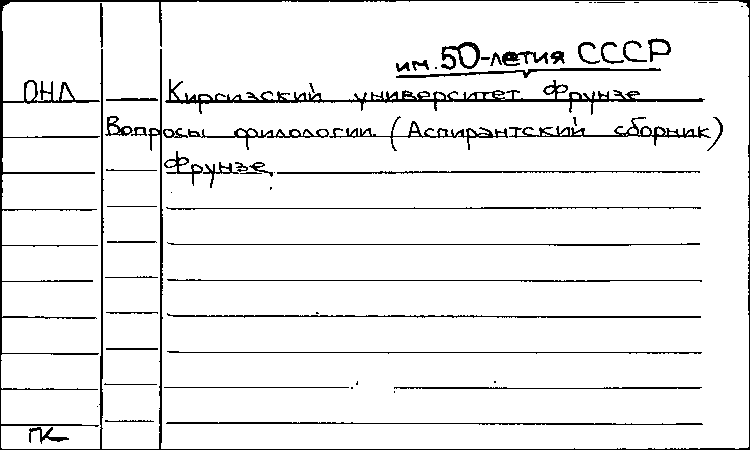 им. 50-летия СССР
ОНЛ Киргизский университет. Фрунзе
Вопросы филологии. (Аспирантский сборник)
Фрунзе.
ГК